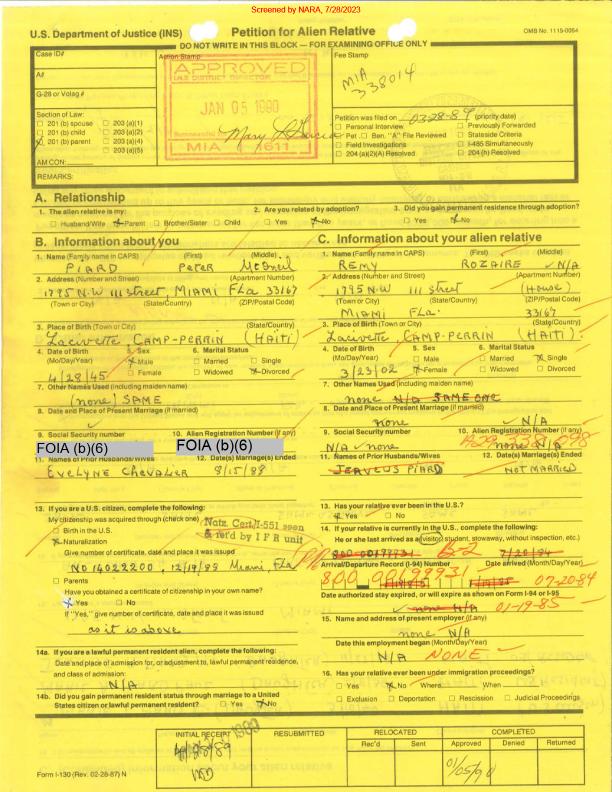 Screened by NARA, 7/28/2023
U.S. Department of Justice (INS) Petition for Alien Relative OMB No. 1115-0054
DO NOT WRITE IN THIS BLOCK — FOR EXAMINING OFFICE ONLY
Case ID# Action Stamp Fee Stamp
A#
G-28 or Volag #
APPROVED
U.S. DISTRICT DIRECTOR
JAN 05 1990
MIA 1611
MIA
338014
Section of Law:
201 (b) spouse 203 (a)(1)
201 (b) child 203 (a)(2)
201 (b) parent 203 (a)(4)
203 (a)(5)
AM CON:
REMARKS:
Petition was filed on 03-28-89 (priority date)
Personal Interview Previously Forwarded
Pet. Ben. "A" File Reviewed Stateside Criteria
Field Investigations I-485 Simultaneously
204 (a)(2)(A) Resolved 204 (h) Resolved
A. Relationship
1. The alien relative is my: 2. Are you related by adoption? 3. Did you gain permanent residence through adoption?
Husband/Wife Parent Brother/Sister Child Yes No Yes No
B. Information about you
1. Name (Family name in CAPS) (First) (Middle)
PIARD Peter McOneil
2. Address (Number and Street) (Apartment Number)
1795 N.W 111 street, MIAMI FLa 33167
(Town or City) (State/Country) (ZIP/Postal Code)
3. Place of Birth (Town or City) (State/Country)
CAMP-PERRIN (HAITI)
4. Date of Birth 5. Sex 6. Marital Status
(Mo/Day/Year) Male Married Single
4/28/45 Female Widowed Divorced
7. Other Names Used (including maiden name)
(none) SAME
8. Date and Place of Present Marriage (if married)
9. Social Security number 10. Alien Registration Number (if any)
FOIA (b)(6) FOIA (b)(6)
11. Names of Prior Husbands/Wives 12. Date(s) Marriage(s) Ended
Evelyne Chevalier 8/15/88
13. If you are a U.S. citizen, complete the following:
My citizenship was acquired through (check one)
Birth in the U.S.
Naturalization
Natz. Cert/I-551 seen
& ret'd by I F R unit
Give number of certificate, date and place it was issued
No 14022200, 12/19/88 Miami, Fla
Parents
Have you obtained a certificate of citizenship in your own name?
Yes No
If "Yes," give number of certificate, date and place it was issued
as it is above
14a. If you are a lawful permanent resident alien, complete the following:
Date and place of admission for, or adjustment to, lawful permanent residence,
and class of admission:
N/A
14b. Did you gain permanent resident status through marriage to a United
States citizen or lawful permanent resident? Yes No
C. Information about your alien relative
1. Name (Family name in CAPS) (First) (Middle)
REMY ROZAIRE N/A
2. Address (Number and Street) (Apartment Number)
1795 N.W 111 street (House)
(Town or City) (State/Country) (ZIP/Postal Code)
MIAMI FLa. 33167
3. Place of Birth (Town or City) (State/Country)
CAMP-PERRIN (HAITI)
4. Date of Birth 5. Sex 6. Marital Status
(Mo/Day/Year) Male Married Single
3/23/02 Female Widowed Divorced
7. Other Names Used (including maiden name)
none N/A SAME ONE
8. Date and Place of Present Marriage (if married)
none N/A
9. Social Security number 10. Alien Registration Number (if any)
N/A none none N/A
11. Names of Prior Husbands/Wives 12. Date(s) Marriage(s) Ended
PIARD NOT MARRIED
13. Has your relative ever been in the U.S.?
Yes No
14. If your relative is currently in the U.S., complete the following:
He or she last arrived as a (visitor, student, stowaway, without inspection, etc.)
800 00199931 B-2 7/20/84
Arrival/Departure Record (I-94) Number Date arrived (Month/Day/Year)
800 00199931 07-20-84
Date authorized stay expired, or will expire as shown on Form I-94 or I-95
none N/A 01-19-85
15. Name and address of present employer (if any)
none N/A
Date this employment began (Month/Day/Year)
N/A NONE
16. Has your relative ever been under immigration proceedings?
Yes No Where When
Exclusion Deportation Rescission Judicial Proceedings
INITIAL RECEIPT RESUBMITTED RELOCATED COMPLETED
Rec'd Sent Approved Denied Returned
01/05/90
Form I-130 (Rev. 02-28-87) N